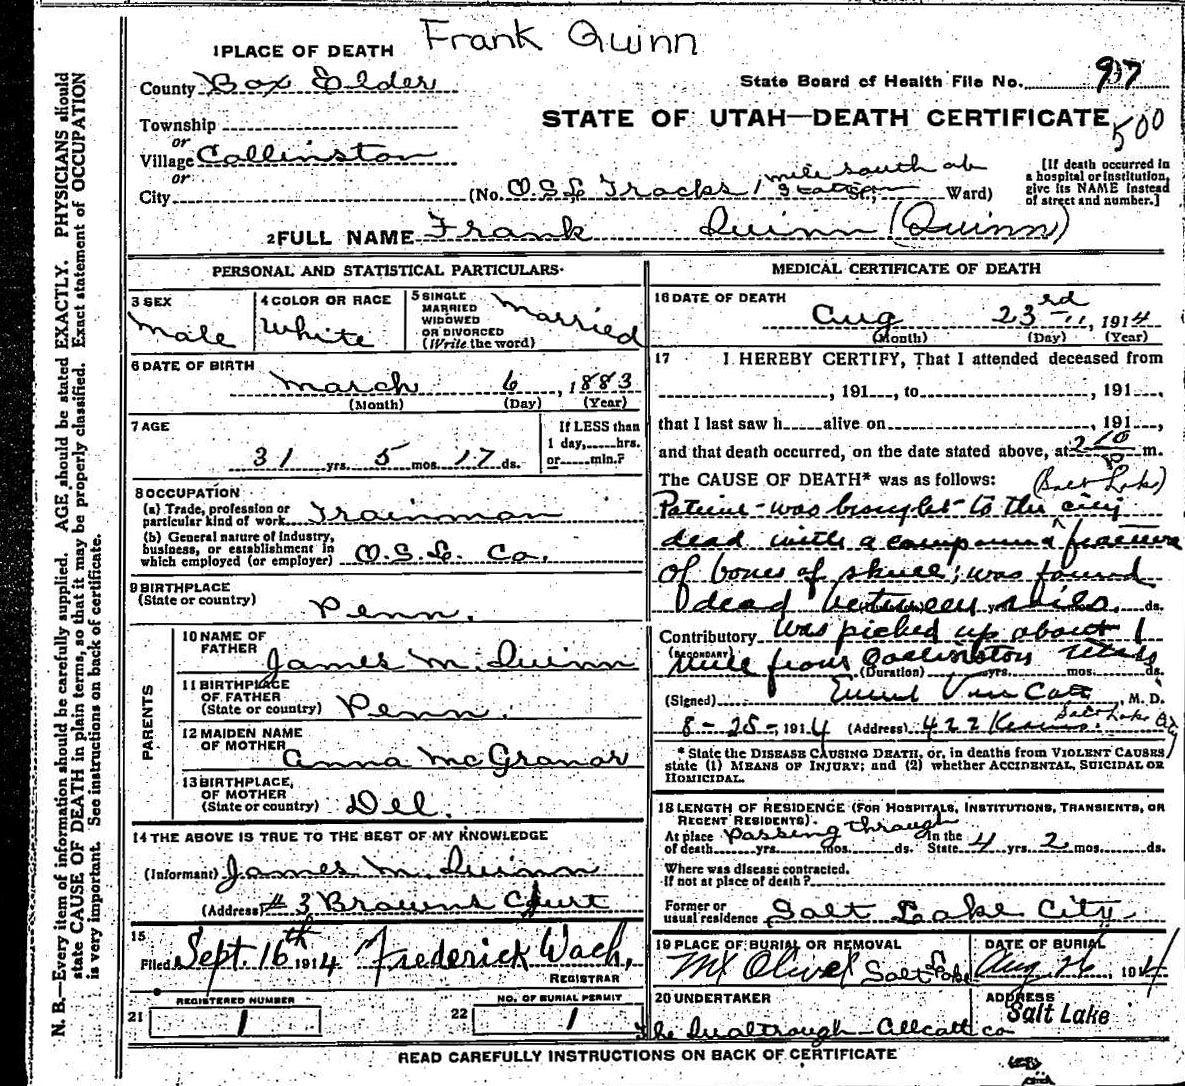 Frank Quinn
1 PLACE OF DEATH
County Box Elder
State Board of Health File No. 937
Township
STATE OF UTAH—DEATH CERTIFICATE 500
or
Village Collinston
or
City (No. O.S.L. Tracks 1 mile south St., Ward)
[If death occurred in
a hospital or institution,
give its NAME instead
of street and number.]
2 FULL NAME Frank Quinn (Quinn)
PERSONAL AND STATISTICAL PARTICULARS
3 SEX
Male
4 COLOR OR RACE
White
5 SINGLE
MARRIED
WIDOWED
OR DIVORCED
(Write the word)
Married
6 DATE OF BIRTH
March 6, 1883
(Month) (Day) (Year)
7 AGE
31 yrs. 5 mos. 17 ds.
If LESS than
1 day, hrs.
or min.?
8 OCCUPATION
(a) Trade, profession or
particular kind of work Trainman
(b) General nature of industry,
business, or establishment in
which employed (or employer) O.S.L. Co.
9 BIRTHPLACE
(State or country)
Penn.
PARENTS
10 NAME OF
FATHER
James M. Quinn
11 BIRTHPLACE
OF FATHER
(State or country) Penn.
12 MAIDEN NAME
OF MOTHER
Anna McGranar
13 BIRTHPLACE,
OF MOTHER
(State or country) Del.
14 THE ABOVE IS TRUE TO THE BEST OF MY KNOWLEDGE
(Informant) James M. Quinn
(Address) # 3 Browns Court
15
Filed Sept. 16th 1914 Frederick Wach,
REGISTRAR
REGISTERED NUMBER
21 1
NO. OF BURIAL PERMIT
22 1
MEDICAL CERTIFICATE OF DEATH
16 DATE OF DEATH
Aug 23rd, 1914
(Month) (Day) (Year)
17 I HEREBY CERTIFY, That I attended deceased from
, 191 , to , 191 ,
that I last saw h alive on , 191 ,
and that death occurred, on the date stated above, at 2 10 m.
The CAUSE OF DEATH* was as follows: (Salt Lake)
Patient was brought to the city
dead with a compound fracture
of bones of skull; was found
dead between rails. ds.
Contributory Was picked up about 1
(SECONDARY)
mile from Collinston Utah
(Duration) yrs. mos. ds.
(Signed) Van Cott, M. D.
8-25-, 1914 (Address) 422 Kearns. Salt Lake City
* State the DISEASE CAUSING DEATH, or, in deaths from VIOLENT CAUSES,
state (1) MEANS OF INJURY; and (2) whether ACCIDENTAL, SUICIDAL OR
HOMICIDAL.
18 LENGTH OF RESIDENCE (FOR HOSPITALS, INSTITUTIONS, TRANSIENTS, OR
RECENT RESIDENTS).
At place Passing through In the
of death yrs. mos. ds. State 4 yrs. 2 mos. ds.
Where was disease contracted.
If not at place of death?
Former or
usual residence Salt Lake City
19 PLACE OF BURIAL OR REMOVAL
Mt Olivet Salt Lake
DATE OF BURIAL
Aug 26, 1914
20 UNDERTAKER
ADDRESS
Salt Lake
READ CAREFULLY INSTRUCTIONS ON BACK OF CERTIFICATE
N. B.—Every item of information should be carefully supplied. AGE should be stated EXACTLY. PHYSICIANS should
state CAUSE OF DEATH in plain terms, so that it may be properly classified. Exact statement of OCCUPATION
is very important. See instructions on back of certificate.